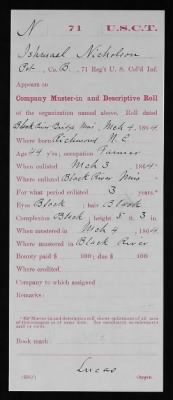 N 71 U.S.C.T.
Ishmael Nicholson
Pvt, Co. B, 71 Reg't U. S. Col'd Inf.
Appears on
Company Muster-in and Descriptive Roll
of the organization named above. Roll dated
Black River Bridge Miss, Mch 4, 1864
Where born Richmond N. C.
Age 44 y'rs; occupation Farmer
When enlisted Mch 3, 1864
Where enlisted Black River Miss
For what period enlisted 3 years.*
Eyes Black; hair Black
Complexion Black; height 5 ft. 3 in.
When mustered in Mch 4, 1864
Where mustered in Black River
Bounty paid $ 100; due $ 100
Where credited
Company to which assigned
Remarks:
Book mark:
Lucas
Copyist.